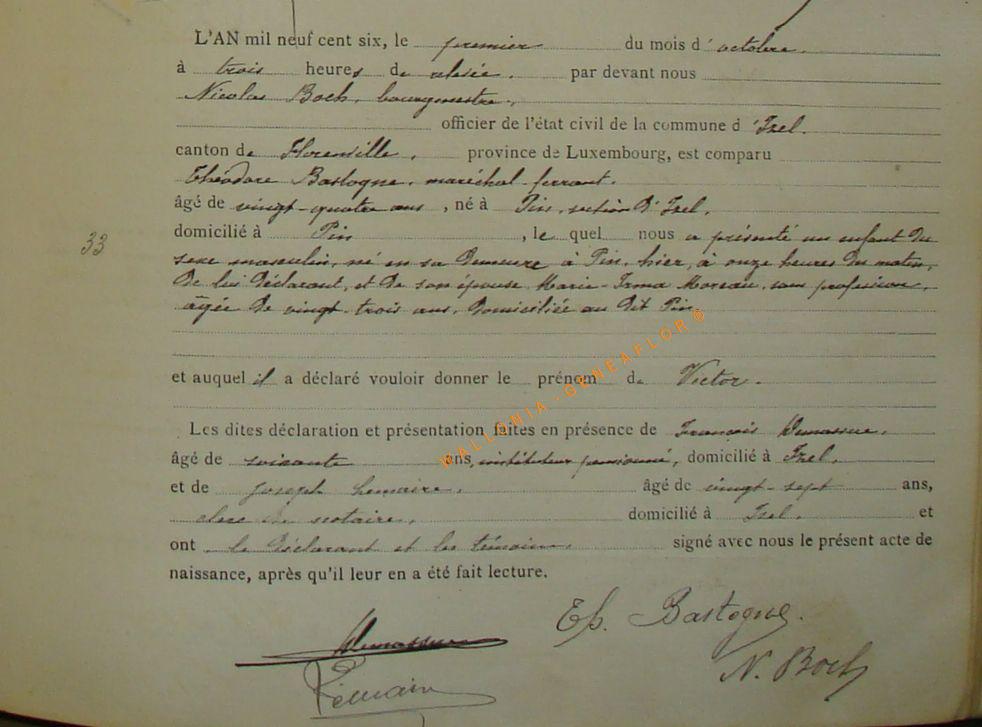 L'AN mil neuf cent six, le premier du mois d'octobre.
à trois heures de relevée. par devant nous
Nicolas Boch, bourgmestre,
officier de l'état civil de la commune d'Izel.
canton de Florenville, province de Luxembourg, est comparu
Théodore Bastogne, maréchal ferrant.
âgé de vingt-quatre ans, né à Pin, section d'Izel.
domicilié à Pin, le quel nous a présenté un enfant du
33
sexe masculin, né en sa demeure à Pin, hier, à onze heures du matin,
de lui déclarant, et de son épouse Marie-Irma Moreau, sans profession,
âgée de vingt-trois ans, domiciliée au dit Pin.
et auquel il a déclaré vouloir donner le prénom de Victor.
WALLONIA-GENEAFLOR©
Les dites déclaration et présentation faites en présence de François Demasure,
âgé de soixante ans, instituteur pensionné, domicilié à Izel,
et de Joseph Lemaire, âgé de vingt-sept ans,
clerc de notaire, domicilié à Izel. et
ont le déclarant et les témoins, signé avec nous le présent acte de
naissance, après qu'il leur en a été fait lecture.
Th. Bastogne.
N. Boch